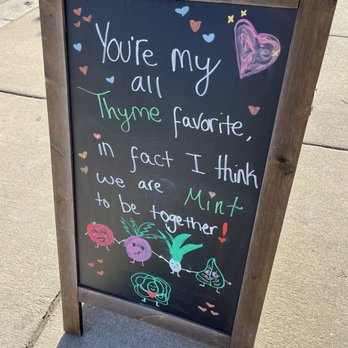 You're my
all
Thyme favorite,
in fact I think
we are Mint
to be together!